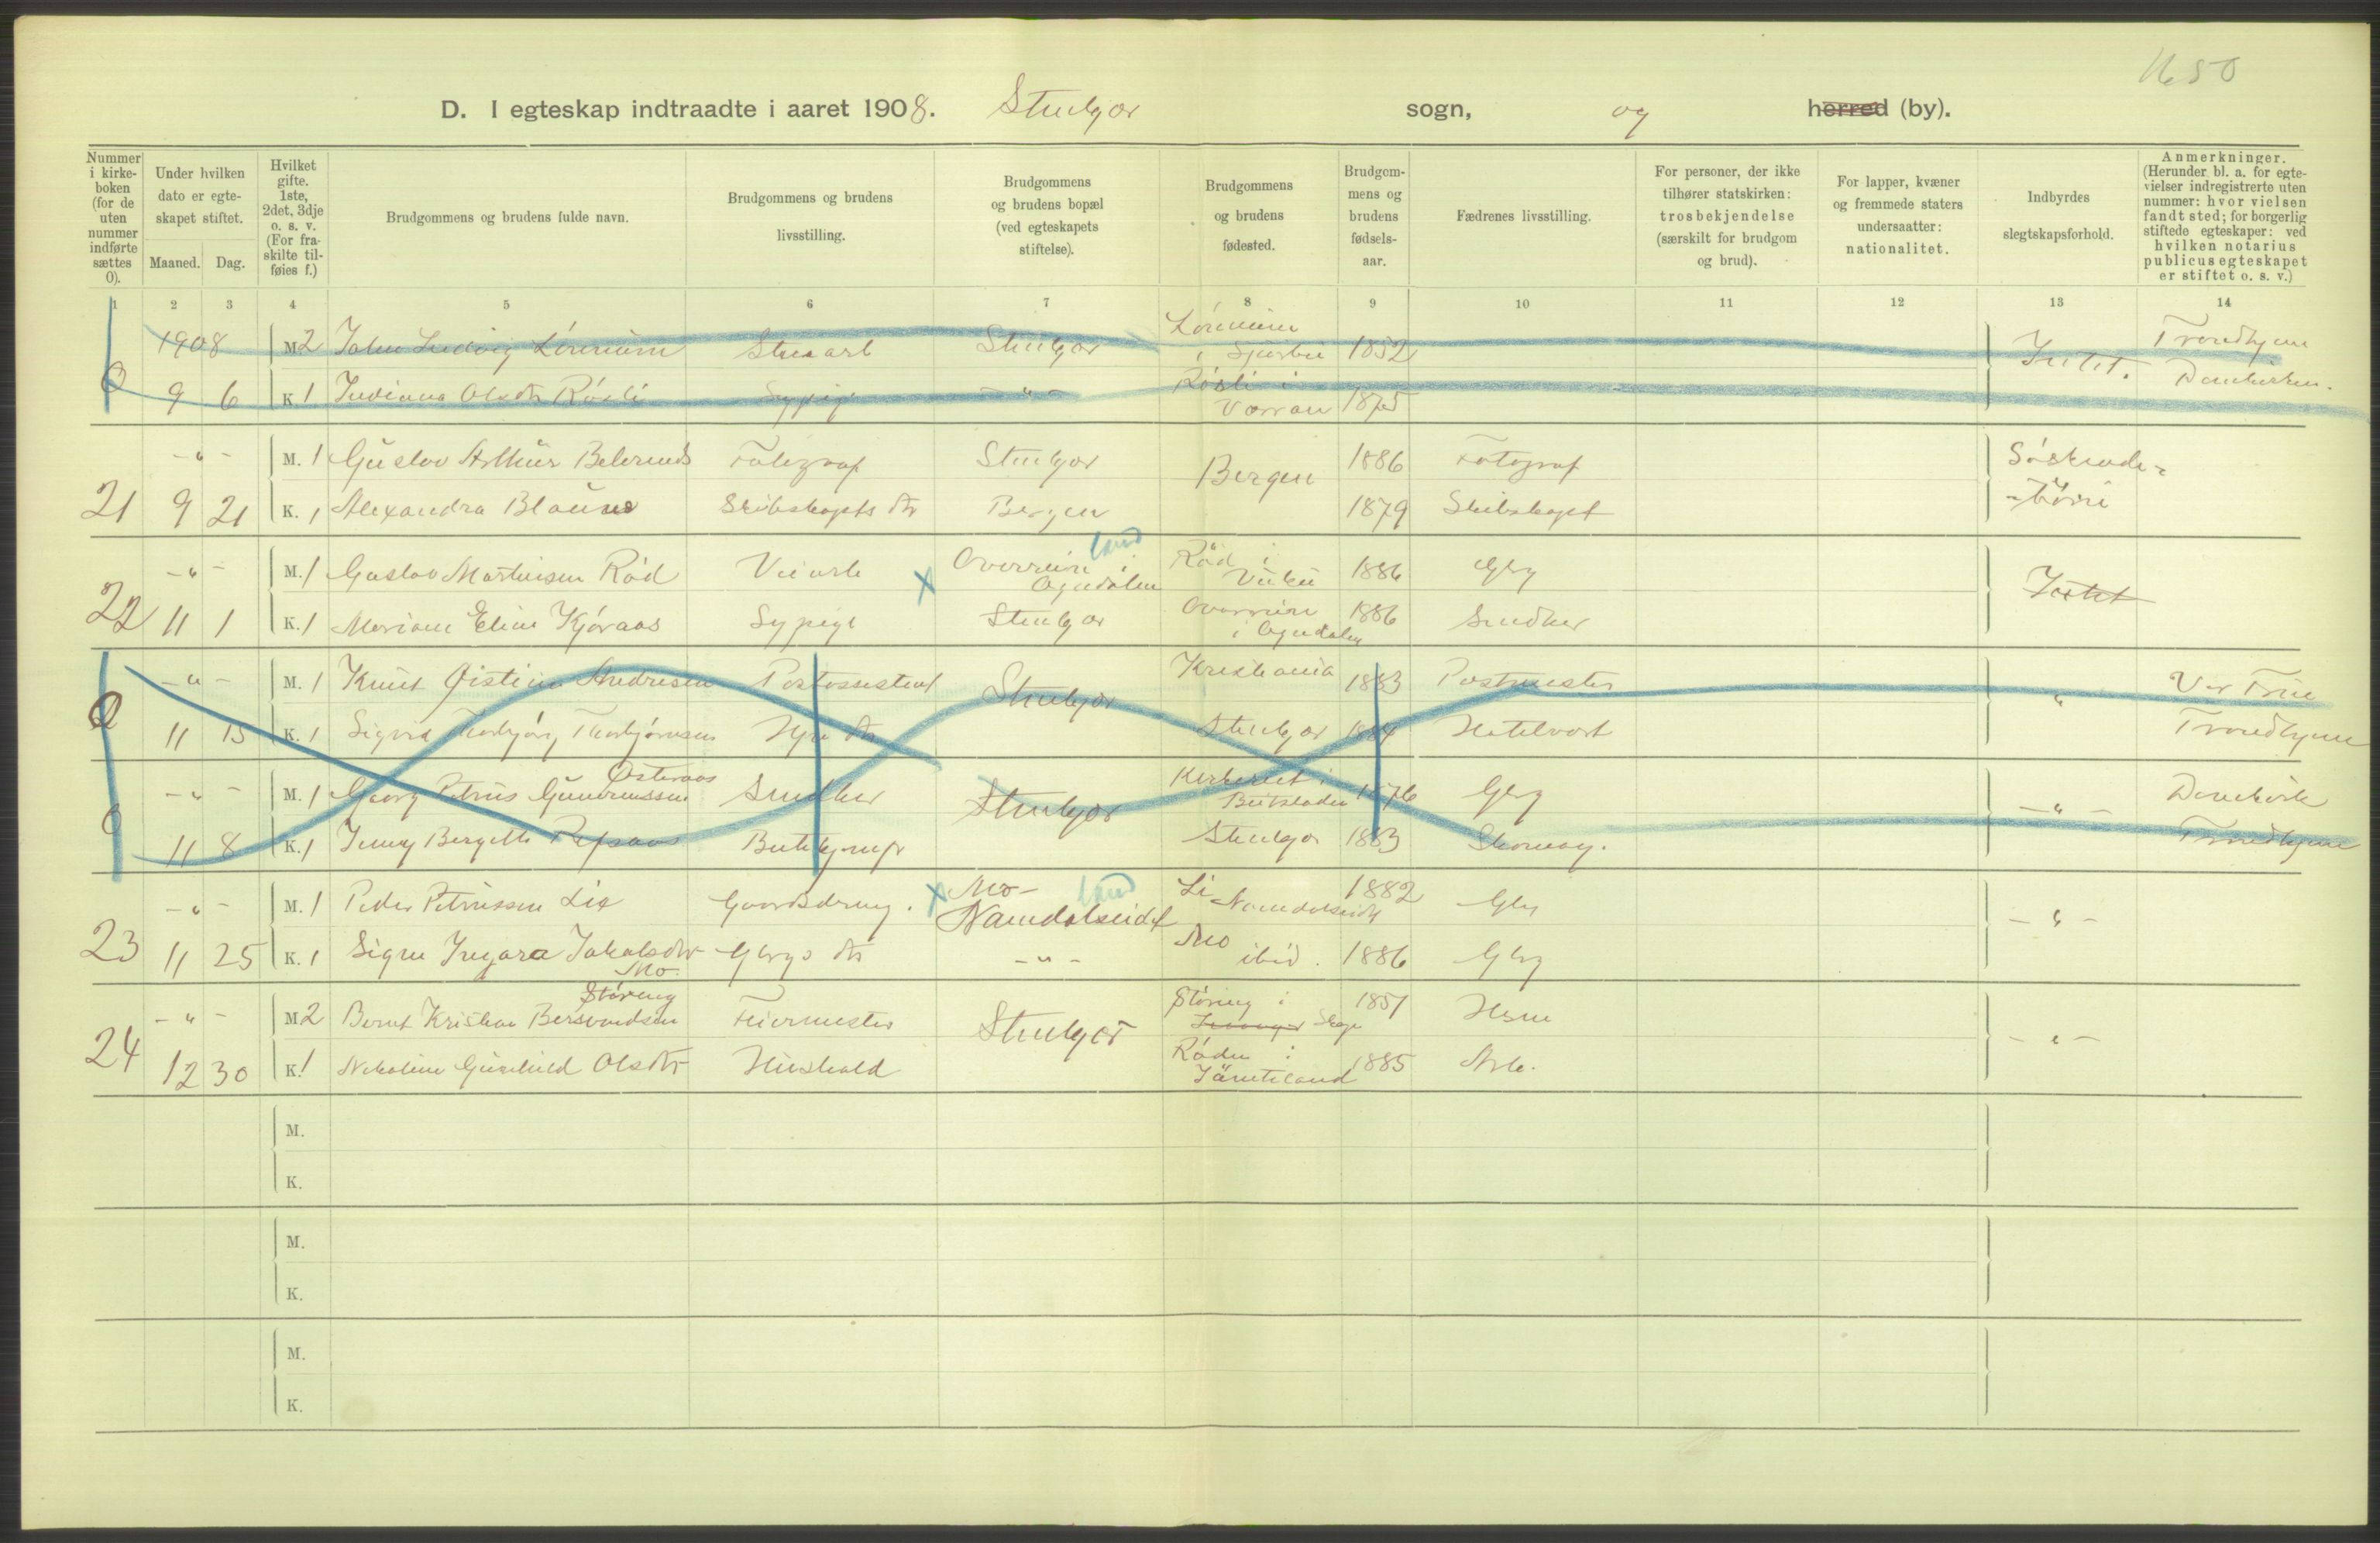 1650
D. I egteskap indtraadte i aaret 1908. Stenkjær sogn, og herred (by).
Nummer i kirke-boken (for de uten nummer indførte sættes 0).
Under hvilken dato er egte-skapet stiftet.
Maaned. Dag.
Hvilket gifte. 1ste, 2det, 3dje o. s. v. (For fra-skilte til-føies f.)
Brudgommens og brudens fulde navn.
Brudgommens og brudens livsstilling.
Brudgommens og brudens bopæl (ved egteskapets stiftelse).
Brudgommens og brudens fødested.
Brudgom-mens og brudens fødsels-aar.
Fædrenes livsstilling.
For personer, der ikke tilhører statskirken: trosbekjendelse (særskilt for brudgom og brud).
For lapper, kvæner og fremmede staters undersaatter: nationalitet.
Indbyrdes slegtskapsforhold.
Anmerkninger. (Herunder bl. a. for egte-vielser indregistrerte uten nummer: hvor vielsen fandt sted; for borgerlig stiftede egteskaper: ved hvilken notarius publicus egteskapet er stiftet o. s. v.)
1 2 3 4 5 6 7 8 9 10 11 12 13 14
1908 M 2 John Ludvig Stenkjær 1852 Intet. Trondhjem
0 9 6 K. 1 Olsdtr Sypige - " - i Værran 1875 Domkirken.
- " - M. 1 Gustav Arthur Fotograf Stenkjær Bergen 1886 Fotograf Søskende-
21 9 21 K. 1 Alexandra Skibskapts dtr Bergen 1879 Skibskapt -børn
- " - M. 1 Gustav Martinsen Rød Veiarb Overrein Ogndalen land Rød i Vuku 1886 Gbrg Intet
22 11 1 K. 1 Elise Kjøraas Sypige Stenkjær Overrein i Ogndalen 1886 Snedker
- " - M. 1 Knut Øistein Andresen Postassistent Stenkjær Kristiania 1883 Postmester " Vor Frue
0 11 15 K. 1 Sigrid Thorbjørg Thorbjørnsen Stenkjær 1884 Hotelvært Trondhjem
- " - M. 1 Georg Petrus Guneriussen Østeraas Snedker Stenkjær i Beitstaden 1876 Gbrg - " - Domkirk
0 11 8 K. 1 Jenny Bergette Butikjomfr Stenkjær 1883 Skomag. Trondhjem
- " - M. 1 Peder Petriussen Lie Gaardsdreng. Mo- land Namdalseidet Li Namdalseidet 1882 Gbrg - " -
23 11 25 K. 1 Signe Jakobsdtr Mo. Gbrgs dtr - " - Mo ibid. 1886 Gbrg
- " - M 2 Bernt Kristian Bersvendsen Støring Feiermester Stenkjær Støring i 1851 Hsm - " -
24 12 30 K. 1 Nikoline Gunhild Olsdtr Hushold Röden i Jämteland 1885 Arb.
M.
K.
M.
K.
M.
K.